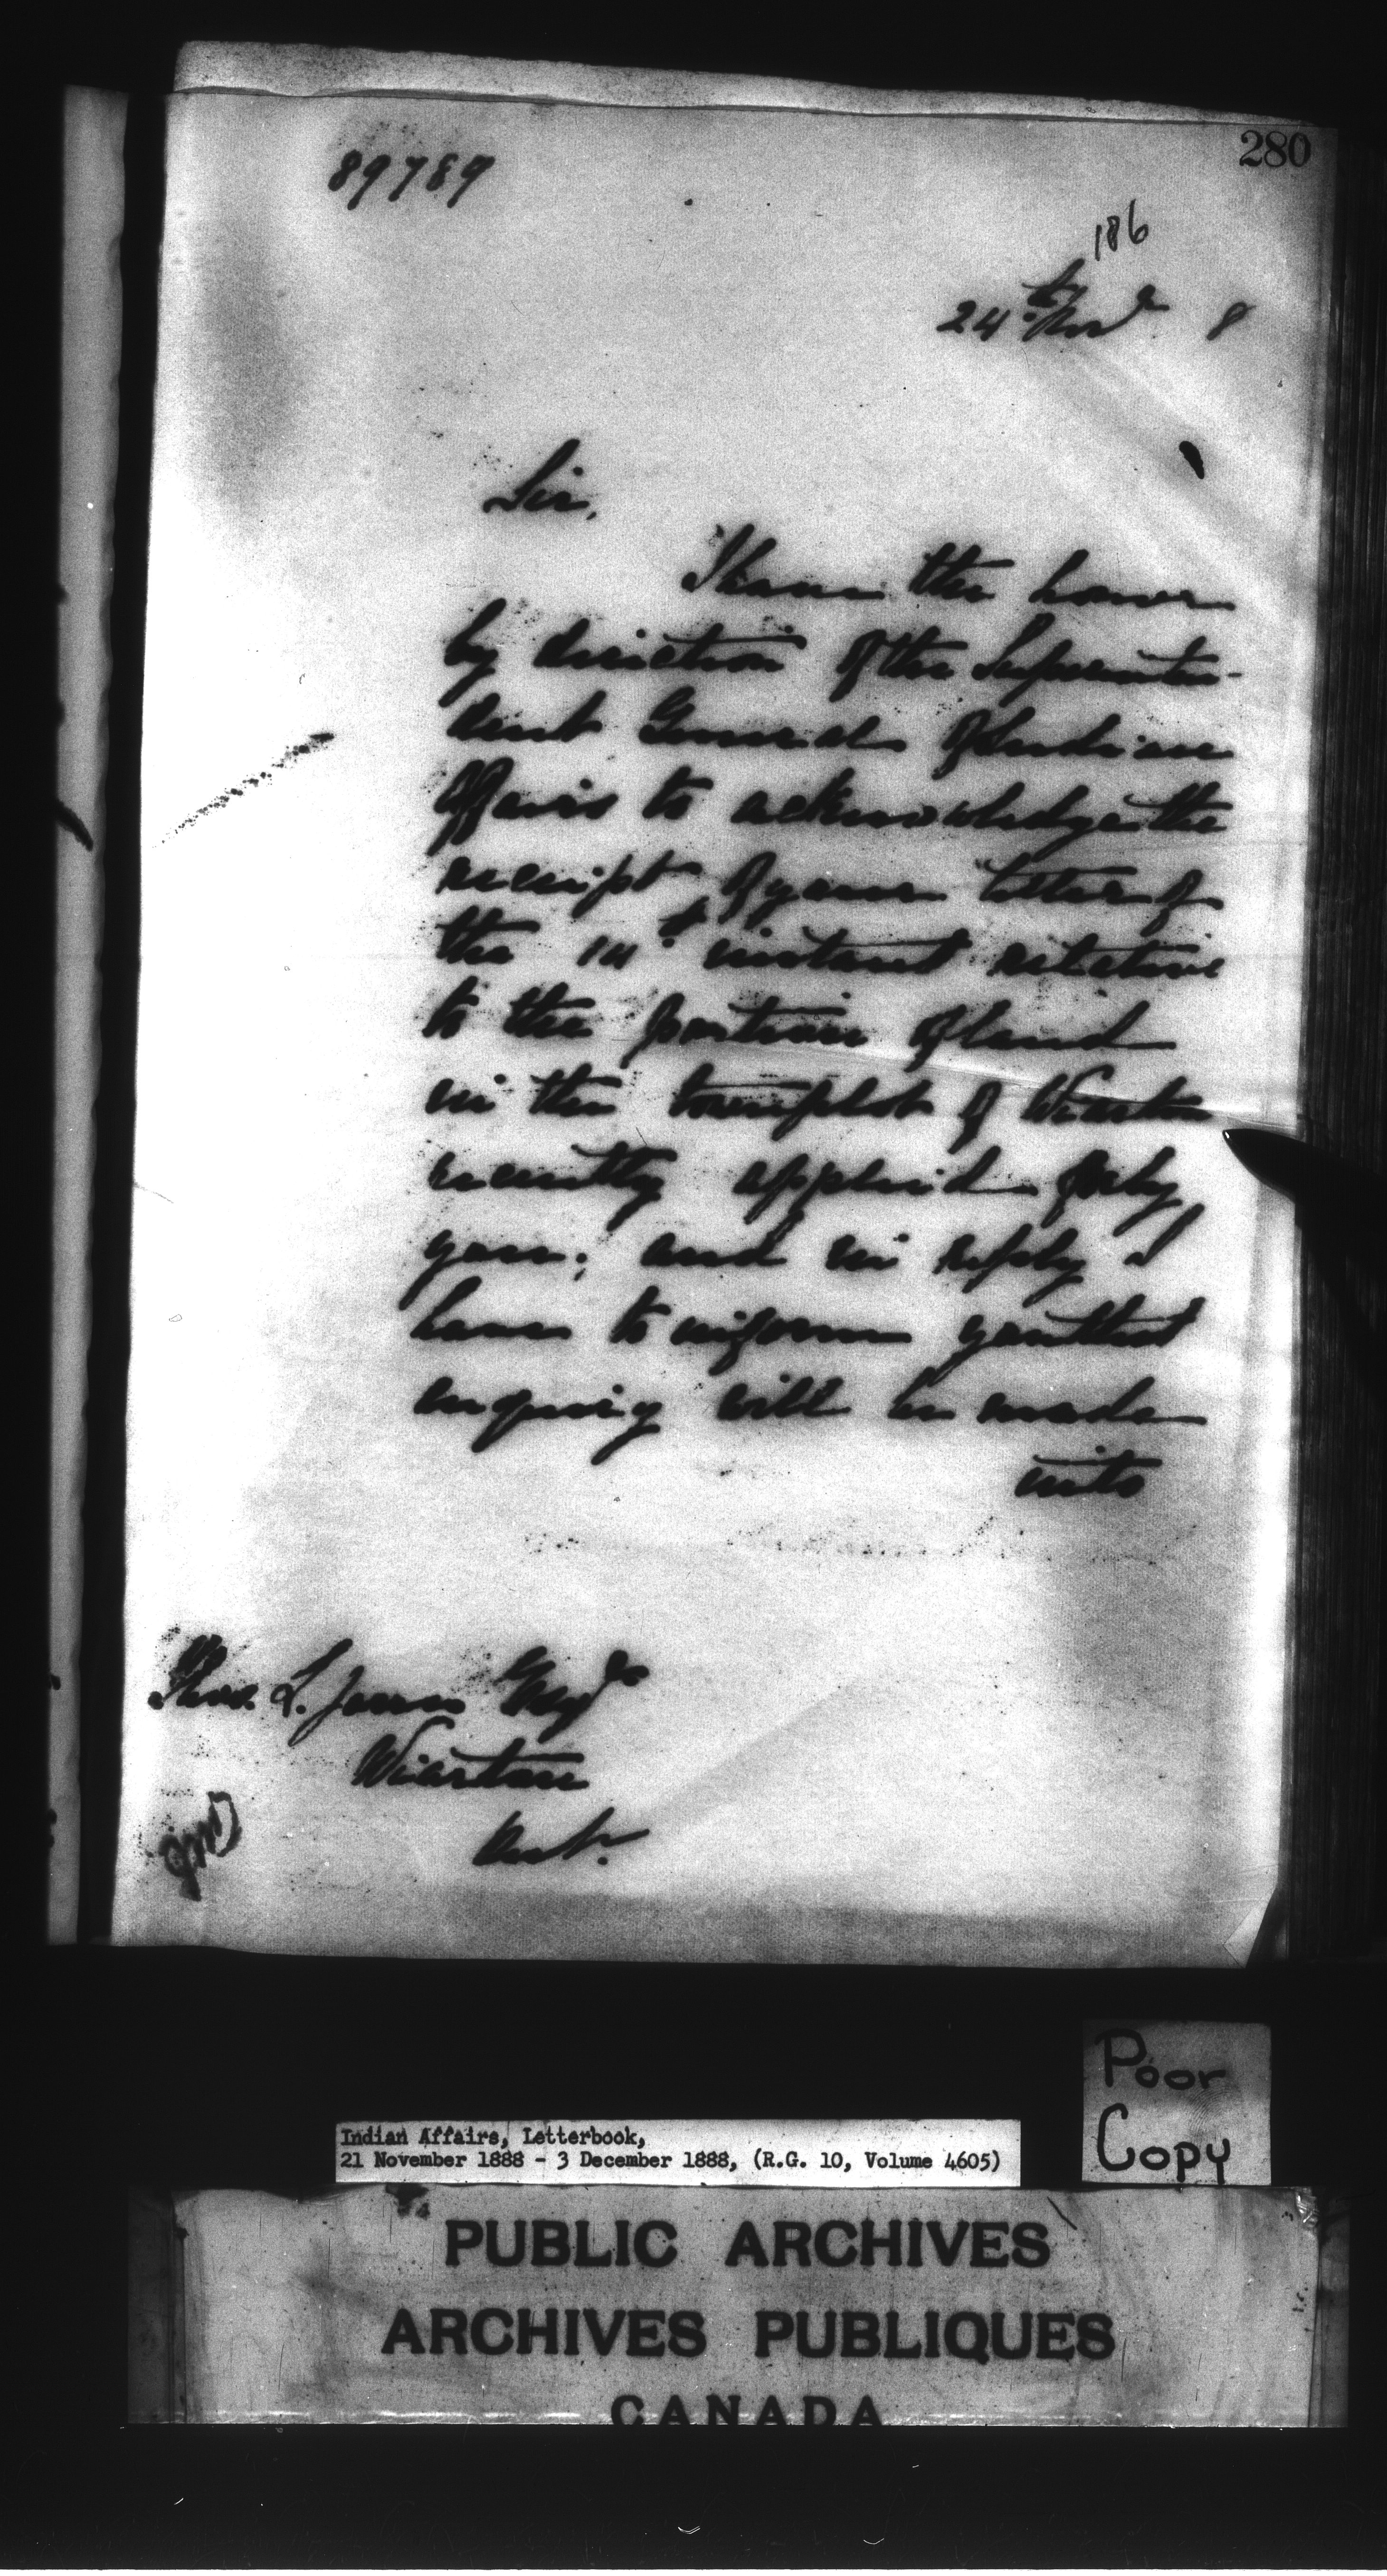 280
89789
186
24th Novr 8
Sir,
I have the honor
by direction of the Superinten-
dent General of Indian
Affairs to acknowledge the
receipt of your letter of
the 14th instant relative
to the portion of land
in the townplot of Wiarton
recently applied for by
you; and in reply I
have to inform you that
enquiry will be made
into
Thos. L. Jones Esqr
Wiarton
Ont.
Poor
Copy
Indian Affairs, Letterbook,
21 November 1888 - 3 December 1888, (R.G. 10, Volume 4605)
PUBLIC ARCHIVES
ARCHIVES PUBLIQUES
CANADA